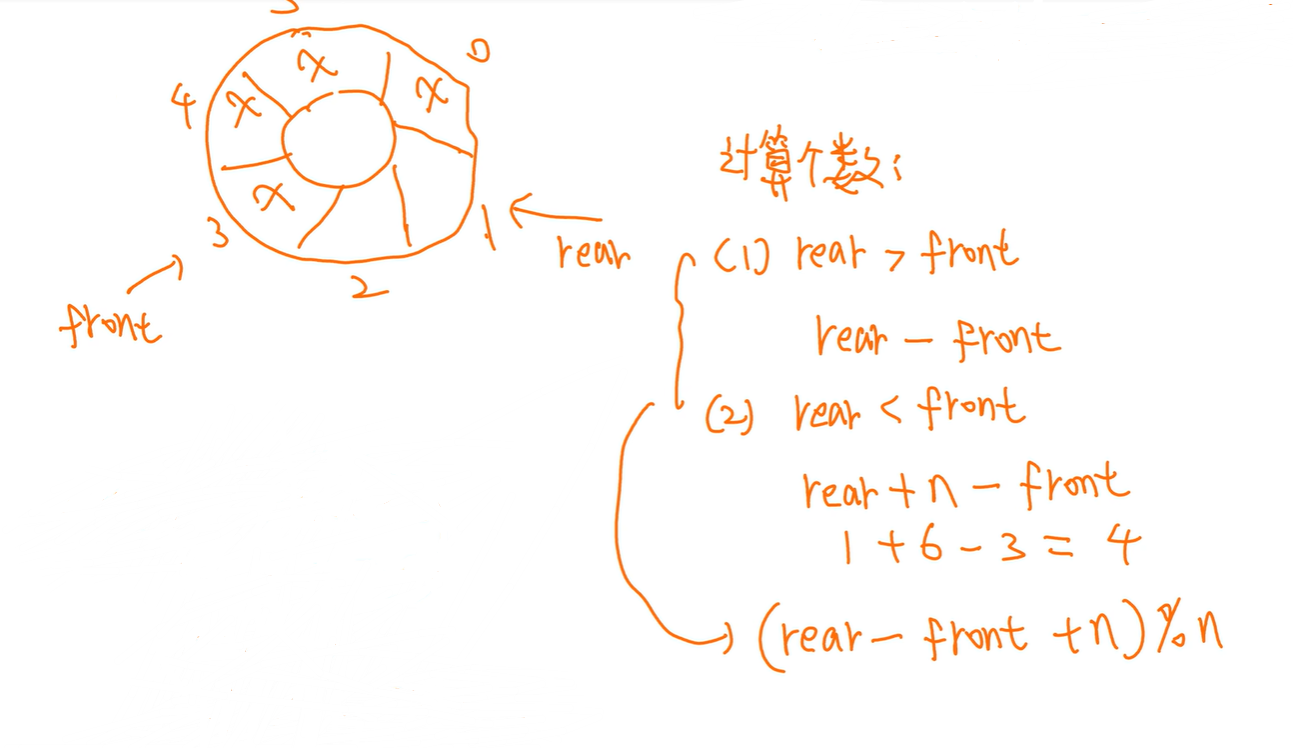 0
4
x
x
x
x
3
1
2
front
rear
计算个数:
(1) rear > front
rear - front
(2) rear < front
rear + n - front
1 + 6 - 3 = 4
(rear - front + n) % n